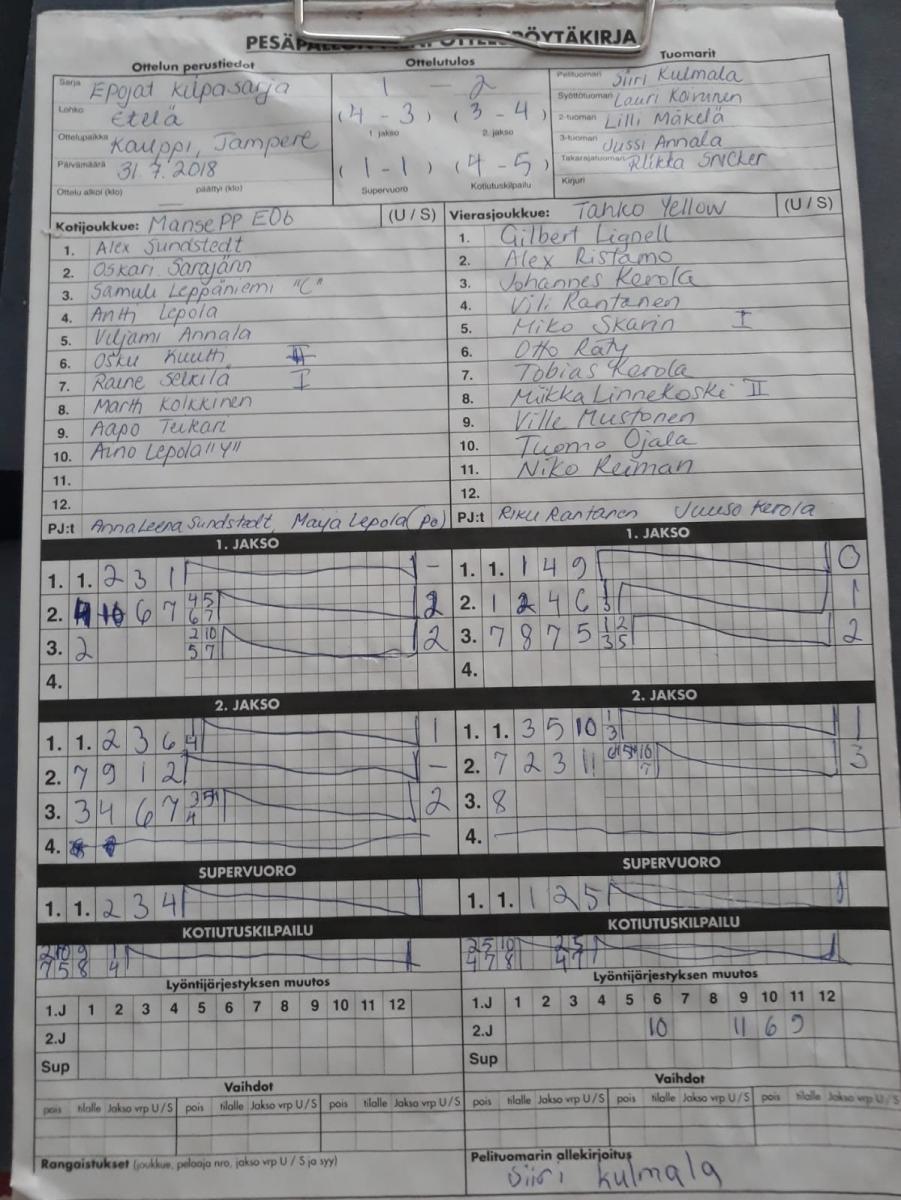 PESÄPALLON PÖYTÄKIRJA
Ottelun perustiedot
Sarja Epojat Kilpasarja
Lohko Etelä
Ottelupaikka Kauppi, Tampere
Päivämäärä 31.7.2018
Ottelu alkoi (klo) päättyi (klo)
Ottelutulos
1 - 2
(4 - 3) (3 - 4)
1. jakso 2. jakso
(1 - 1) (4 - 5)
Supervuoro Kotiutuskilpailu
Tuomarit
Pelituomari Siiri Kulmala
Syöttötuomari Lauri Koivunen
2-tuomari Lilli Mäkelä
3-tuomari Jussi Annala
Takarajatuomari Riikka
Kirjuri
Kotijoukkue: Manse PP E06 (U / S)
1. Alex Sundstedt
2. Oskari Sarajärvi
3. Samuli Leppäniemi "C"
4. Antti Lepola
5. Viljami Annala
6. Osku
7. Raine Selkilä I
8. Kolkkinen
9. Aapo Teikari
10. Aino Lepola "Y"
11.
12.
PJ:t AnnaLeena Sundstedt, Maija Lepola (po)
Vierasjoukkue: Tahko Yellow (U / S)
1. Gilbert Lignell
2. Alex Ristamo
3. Johannes Kerola
4. Vili Rantanen
5. Miko Skarin I
6. Otto Räty
7. Tobias Kerola
8. Miikka Linnekoski II
9. Ville Mustonen
10. Tuomo Ojala
11. Niko Reiman
12.
PJ:t Riku Rantanen Juuso Kerola
1. JAKSO
1. 1. 2 3 1 -
2. 6 7 4 5 6 7 2
3. 2 2 10 5 7 2
4.
1. JAKSO
1. 1. 1 4 9 0
2. 1 2 4 6 1 3 1
3. 7 8 7 5 1 2 3 5 2
4.
2. JAKSO
1. 1. 2 3 6 4 1
2. 7 9 1 2 -
3. 3 4 6 7 2
4.
2. JAKSO
1. 1. 3 5 10 1 3 1
2. 7 2 3 11 3
3. 8
4.
SUPERVUORO
1. 1. 2 3 4
SUPERVUORO
1. 1. 1 2 5
KOTIUTUSKILPAILU
2 10 9 1
7 5 8 4
KOTIUTUSKILPAILU
2 5 10 2 5
4 7 8 4 7
Lyöntijärjestyksen muutos
1.J 1 2 3 4 5 6 7 8 9 10 11 12
2.J
Sup
Lyöntijärjestyksen muutos
1.J 1 2 3 4 5 6 7 8 9 10 11 12
2.J 10 11 6 9
Sup
Vaihdot
pois tilalle Jakso vrp U / S pois tilalle Jakso vrp U / S pois tilalle Jakso vrp U / S
Vaihdot
pois tilalle Jakso vrp U / S pois tilalle Jakso vrp U / S pois tilalle Jakso vrp U / S
Rangaistukset (joukkue, pelaaja nro, jakso vrp U / S ja syy)
Pelituomarin allekirjoitus
Siiri Kulmala